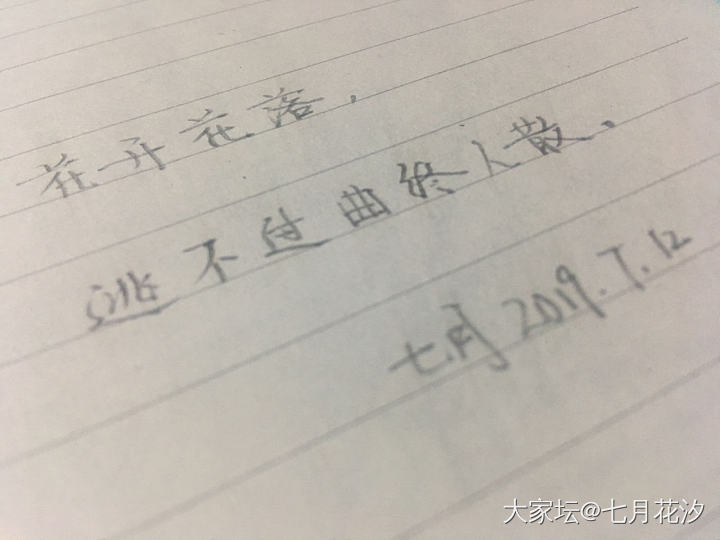 花开花落，
逃不过曲终人散。
七月 2019.7.12
大家坛@七月花汐